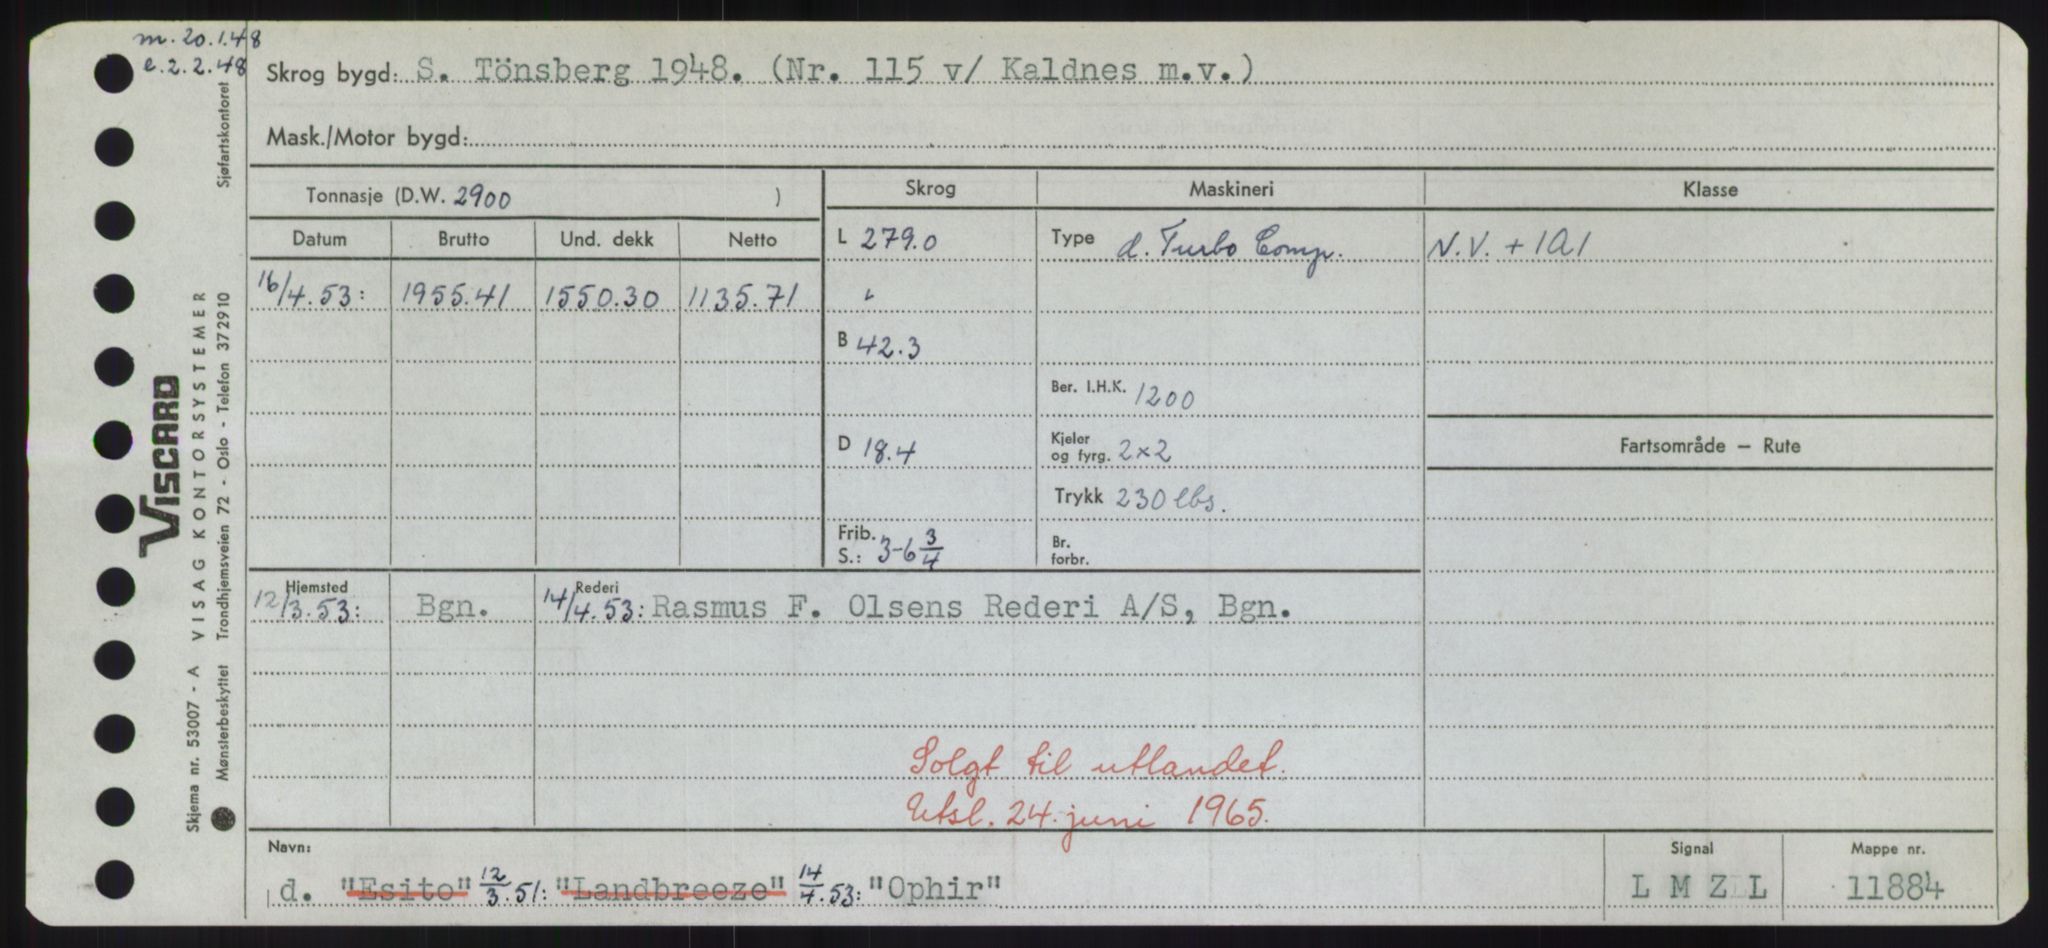 m. 20.1.48
e. 2.2.48
Skrog bygd: S. Tönsberg 1948. (Nr. 115 v/ Kaldnes m.v.)
Mask./Motor bygd:
Tonnasje (D.W. 2900 )
Skrog Maskineri Klasse
Datum Brutto Und. dekk Netto
L 279.0 Type d. Turbo Comp. N.V. + 1A1
16/4.53: 1955.41 1550.30 1135.71
B 42.3
Ber. I.H.K. 1200
D 18.4 Kjeler og fyrg. 2x2 Fartsområde — Rute
Trykk 230 lbs.
Frib. S.: 3-6 3/4 Br. forbr.
Hjemsted Rederi
12/3.53: Bgn. 14/4.53: Rasmus F. Olsens Rederi A/S, Bgn.
Solgt til utlandet.
Utsl. 24. juni 1965.
Navn: Signal Mappe nr.
d. "Esito" 12/3.51: "Landbreeze" 14/4.53: "Ophir" L M Z L 11884
Sjøfartskontoret
VISCARD
VISAG KONTORSYSTEMER
Trondhjemsveien 72 - Oslo - Telefon 372910
Skjema nr. 53007 - A
Mønsterbeskyttet